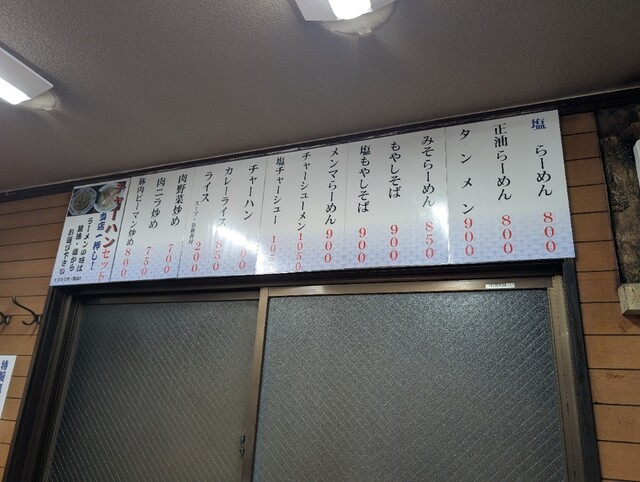 塩らーめん 800
正油らーめん 800
タンメン 900
みそらーめん 850
もやしそば 900
塩もやしそば 900
メンマらーめん 900
チャーシューメン 1050
塩チャーシュー
チャーハン
カレーライス
ライス 200
肉野菜炒め 700
肉ニラ炒め 750
豚肉ピーマン炒め 800
チャーハンセット
当店一押し！
ラーメンの味は
醤油・塩から
お選び下さい